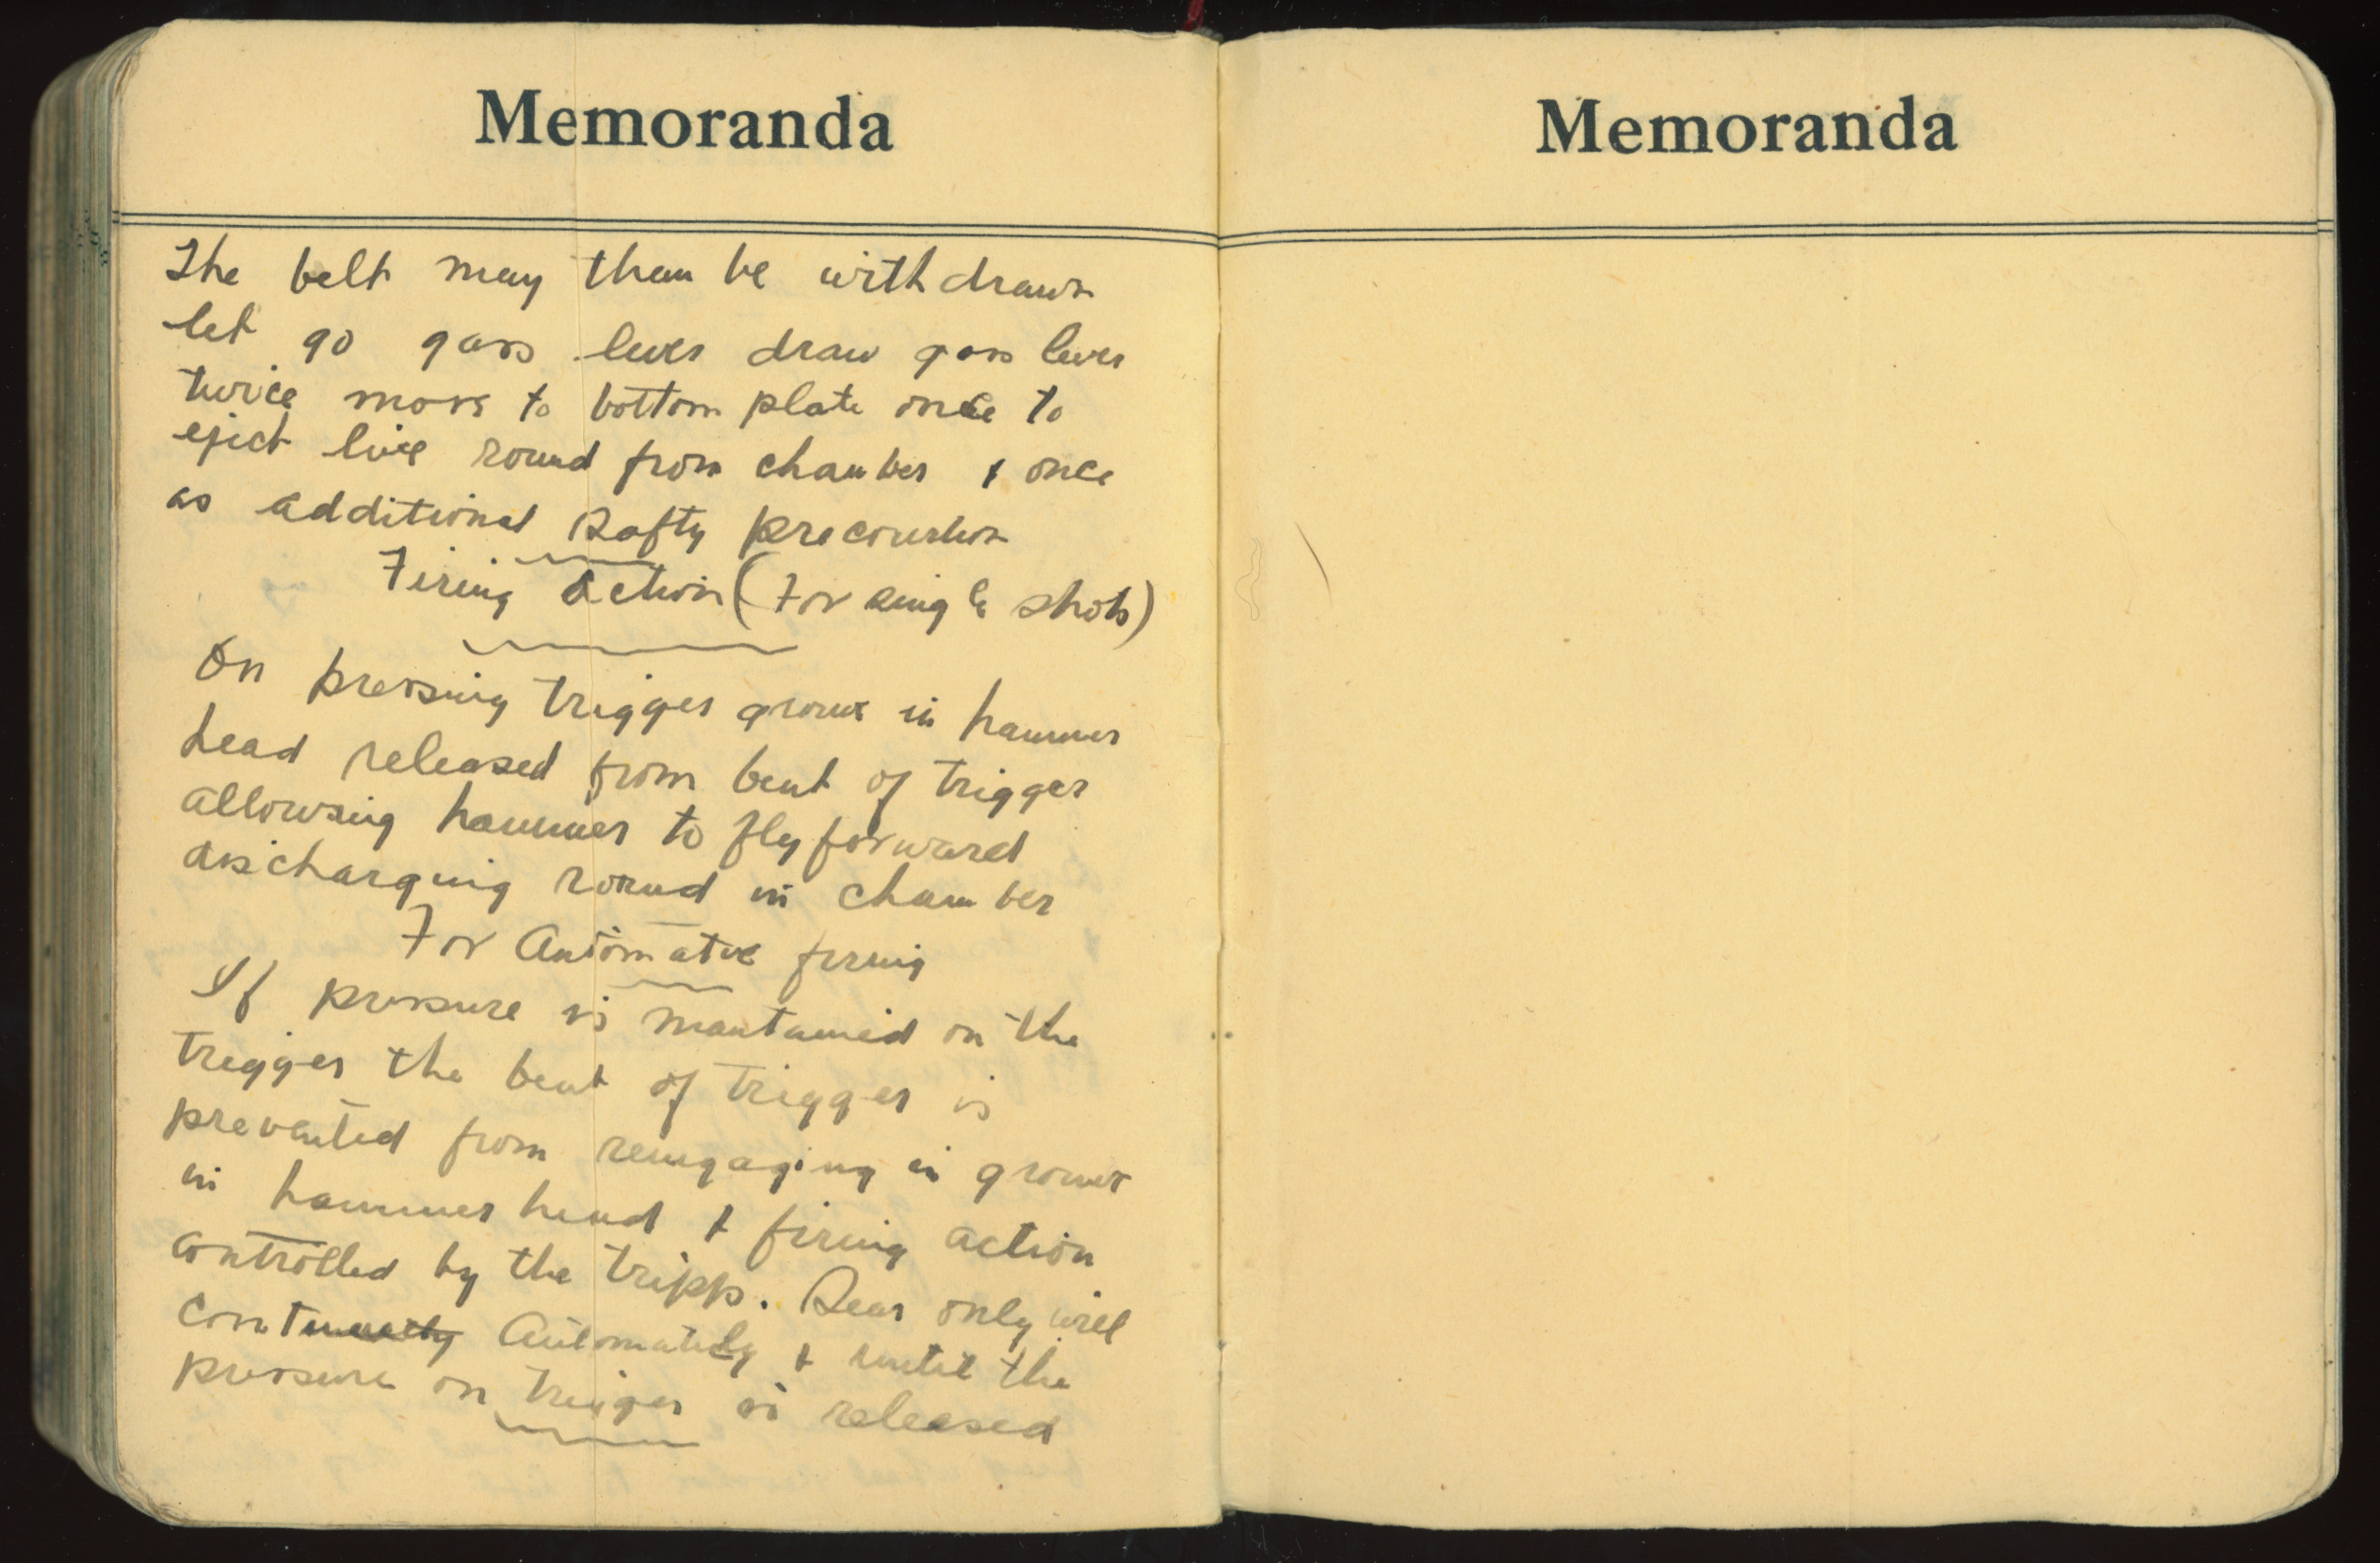 Memoranda
The belt may than be withdrawn
let go gass lever draw gass lever
twice more to bottom plate once to
eject live round from chamber & once
as additional Safty precaustion
Firing Action (For single shots)
On pressing trigger grouve in hammer
head released from bent of trigger
allowing hammer to fly forward
discharging round in chamber
For Automatic firing
If pressure is mantained on the
trigger the bent of trigger is
prevented from reingaging in grouve
in hammer head & firing action
controlled by the tripp. Sear only will
Automaticly & until the
pressure on trigger is released
Memoranda